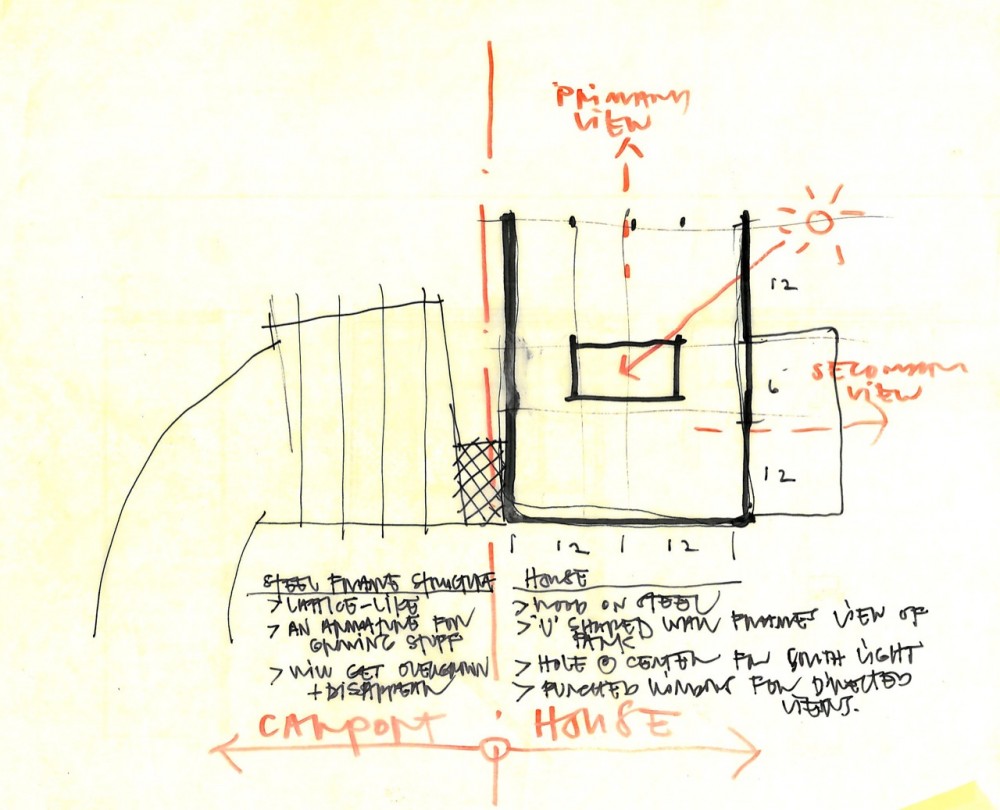 PRIMARY
VIEW
12
6
SECONDARY
VIEW
12
12 12
STEEL FRAME STRUCTURE
> LATTICE-LIKE
> AN ARMATURE FOR
GROWING STUFF
> WILL GET OVERGROWN
+ DISAPPEAR
HOUSE
> WOOD ON STEEL
> 'U' SHAPED WALL FRAMES VIEW OF
PARK
> HOLE @ CENTER FOR SOUTH LIGHT
> PUNCHED WINDOWS FOR DIRECTED
VIEWS.
CARPORT HOUSE